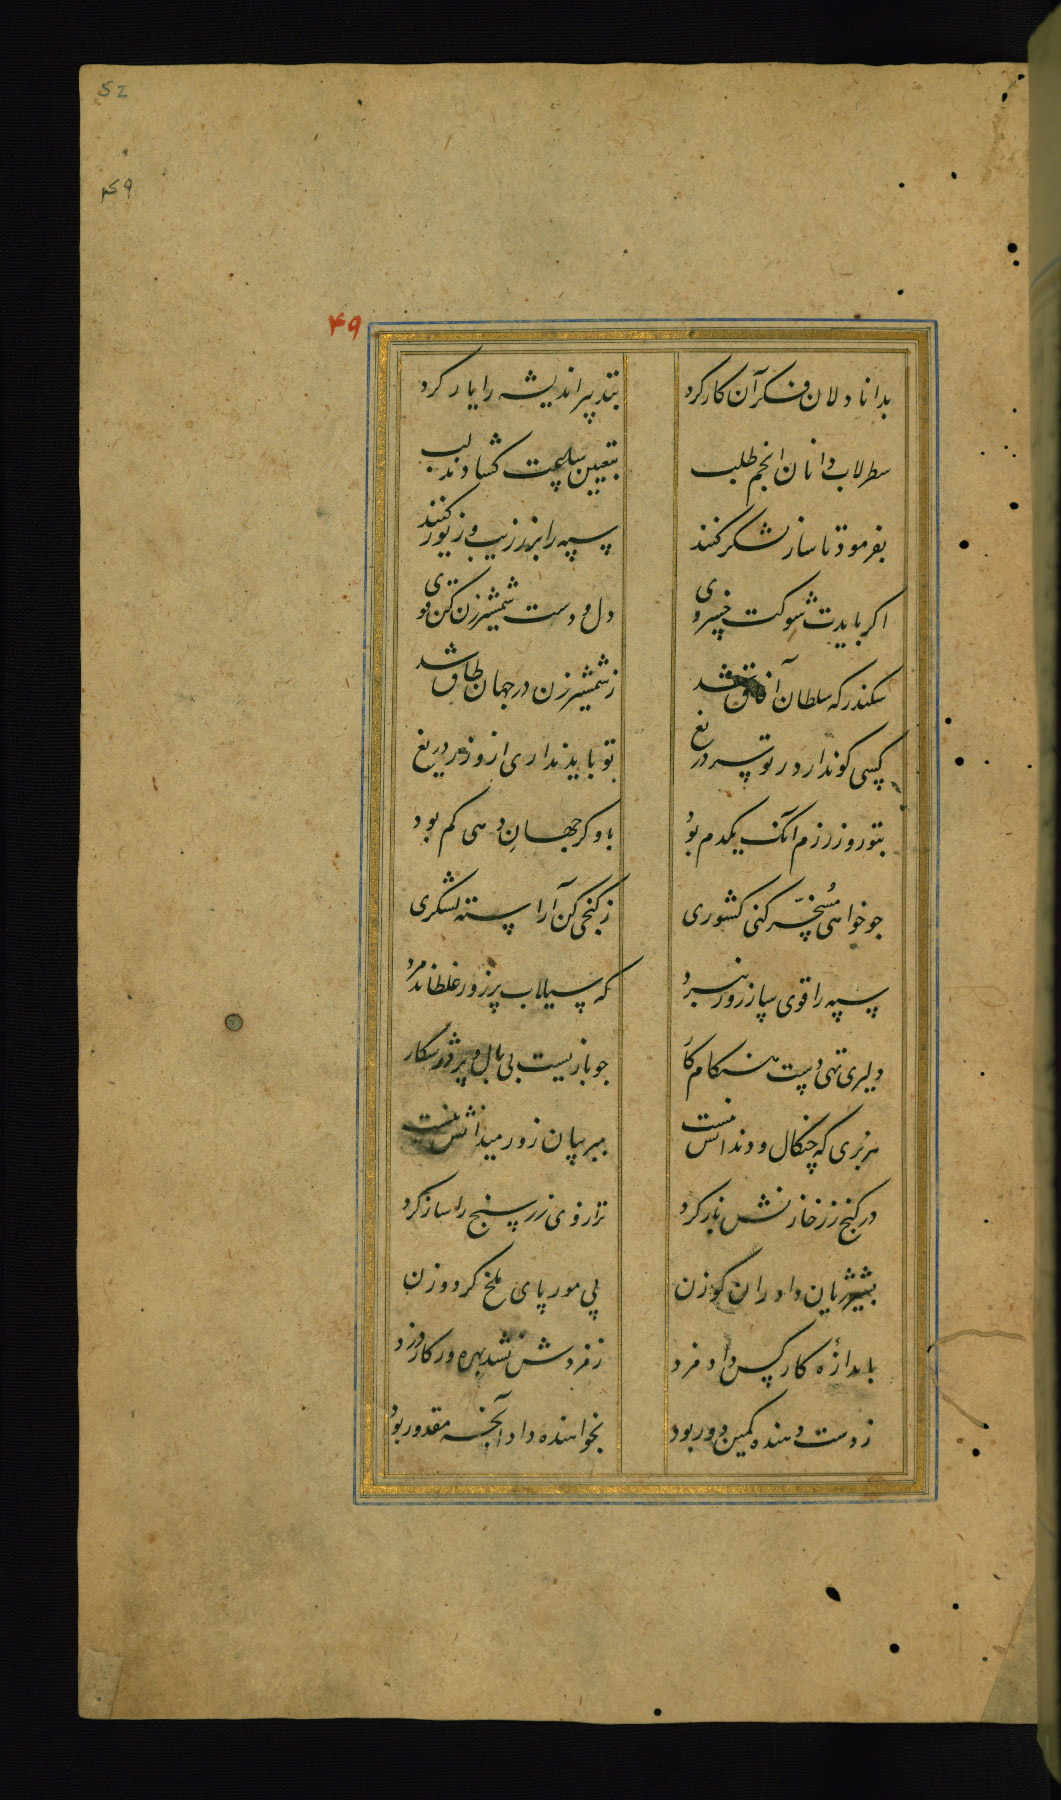 52
۴۹
۴۹
بدانا دلان فکر آن کار کرد
بتدبیر اندیشه را یار کرد
سطرلاب دانان انجم طلب
بتعیین ساعت گشادند لب
بفرمود تا ساز لشکر کنند
سپه را بزر زیب و زیور کنند
اکر بایدت شوکت خسروی
دل و دست شمشیرزن کن قوی
سکندر که سلطان آفاق شد
ز شمشیرزن در جهان طاق شد
کسی کو ندارد ز تو سر دریغ
تو باید نداری ازو زر دریغ
بتو روز رزم آنک یکدم بود
باو کر جهان دهی کم بود
جو خواهی مُسخّر کنی کشوری
ز کنجی کن آراسته لشکری
سپه را قوی ساز روز نبرد
که سیلاب پرزور غلطاند مرد
دلیری تهی دست هنکام کار
جو بازیست بی بال و پر در شکار
هزبری که چنکال و دندانش نیست
ببر بیان زور میدانش نیست
در کنج زر خازنش باز کرد
ترازوی زر سنج را ساز کرد
بشیر ژیان داد ران کوزن
پی مور پای ملخ کرد وزن
باندازه کار کس داد مزد
ز مزدش نشد بهره ور کار دزد
ز دست دهنده کمین دور بود
بخواهنده داد آنجه مقدور بود